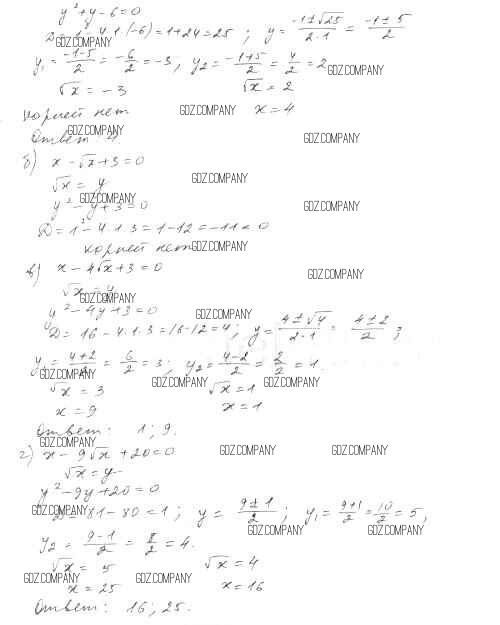 y² + y - 6 = 0
D = 1 - 4·1·(-6) = 1 + 24 = 25 ; y = (-1 ± √25)/(2·1) = (-1 ± 5)/2
GDZ.COMPANY
y₁ = (-1-5)/2 = -6/2 = -3, y₂ = (-1+5)/2 = 4/2 = 2
GDZ.COMPANY
√x = -3 √x = 2
корней нет GDZ.COMPANY x = 4
GDZ.COMPANY
Ответ 4. GDZ.COMPANY
б) x - √x + 3 = 0
√x = y GDZ.COMPANY
GDZ.COMPANY
y² - y + 3 = 0 GDZ.COMPANY
D = 1² - 4·1·3 = 1 - 12 = -11 < 0
корней нет GDZ.COMPANY
в) x - 4√x + 3 = 0 GDZ.COMPANY
√x = y
GDZ.COMPANY
y² - 4y + 3 = 0 GDZ.COMPANY
D = 16 - 4·1·3 = 16 - 12 = 4; y = (4 ± √4)/(2·1) = (4 ± 2)/2 ;
y₁ = (4+2)/2 = 6/2 = 3; y₂ = (4-2)/2 = 2/2 = 1.
GDZ.COMPANY GDZ.COMPANY GDZ.COMPANY
√x = 3 √x = 1
x = 9 x = 1
Ответ: 1; 9.
GDZ.COMPANY
г) x - 9√x + 20 = 0 GDZ.COMPANY GDZ.COMPANY
√x = y
y² - 9y + 20 = 0
GDZ.COMPANY
D = 81 - 80 = 1; y = (9 ± 1)/2 ; y₁ = (9+1)/2 = 10/2 = 5,
GDZ.COMPANY GDZ.COMPANY
y₂ = (9-1)/2 = 8/2 = 4.
√x = 5 √x = 4
GDZ.COMPANY GDZ.COMPANY
x = 25 x = 16
Ответ: 16; 25.